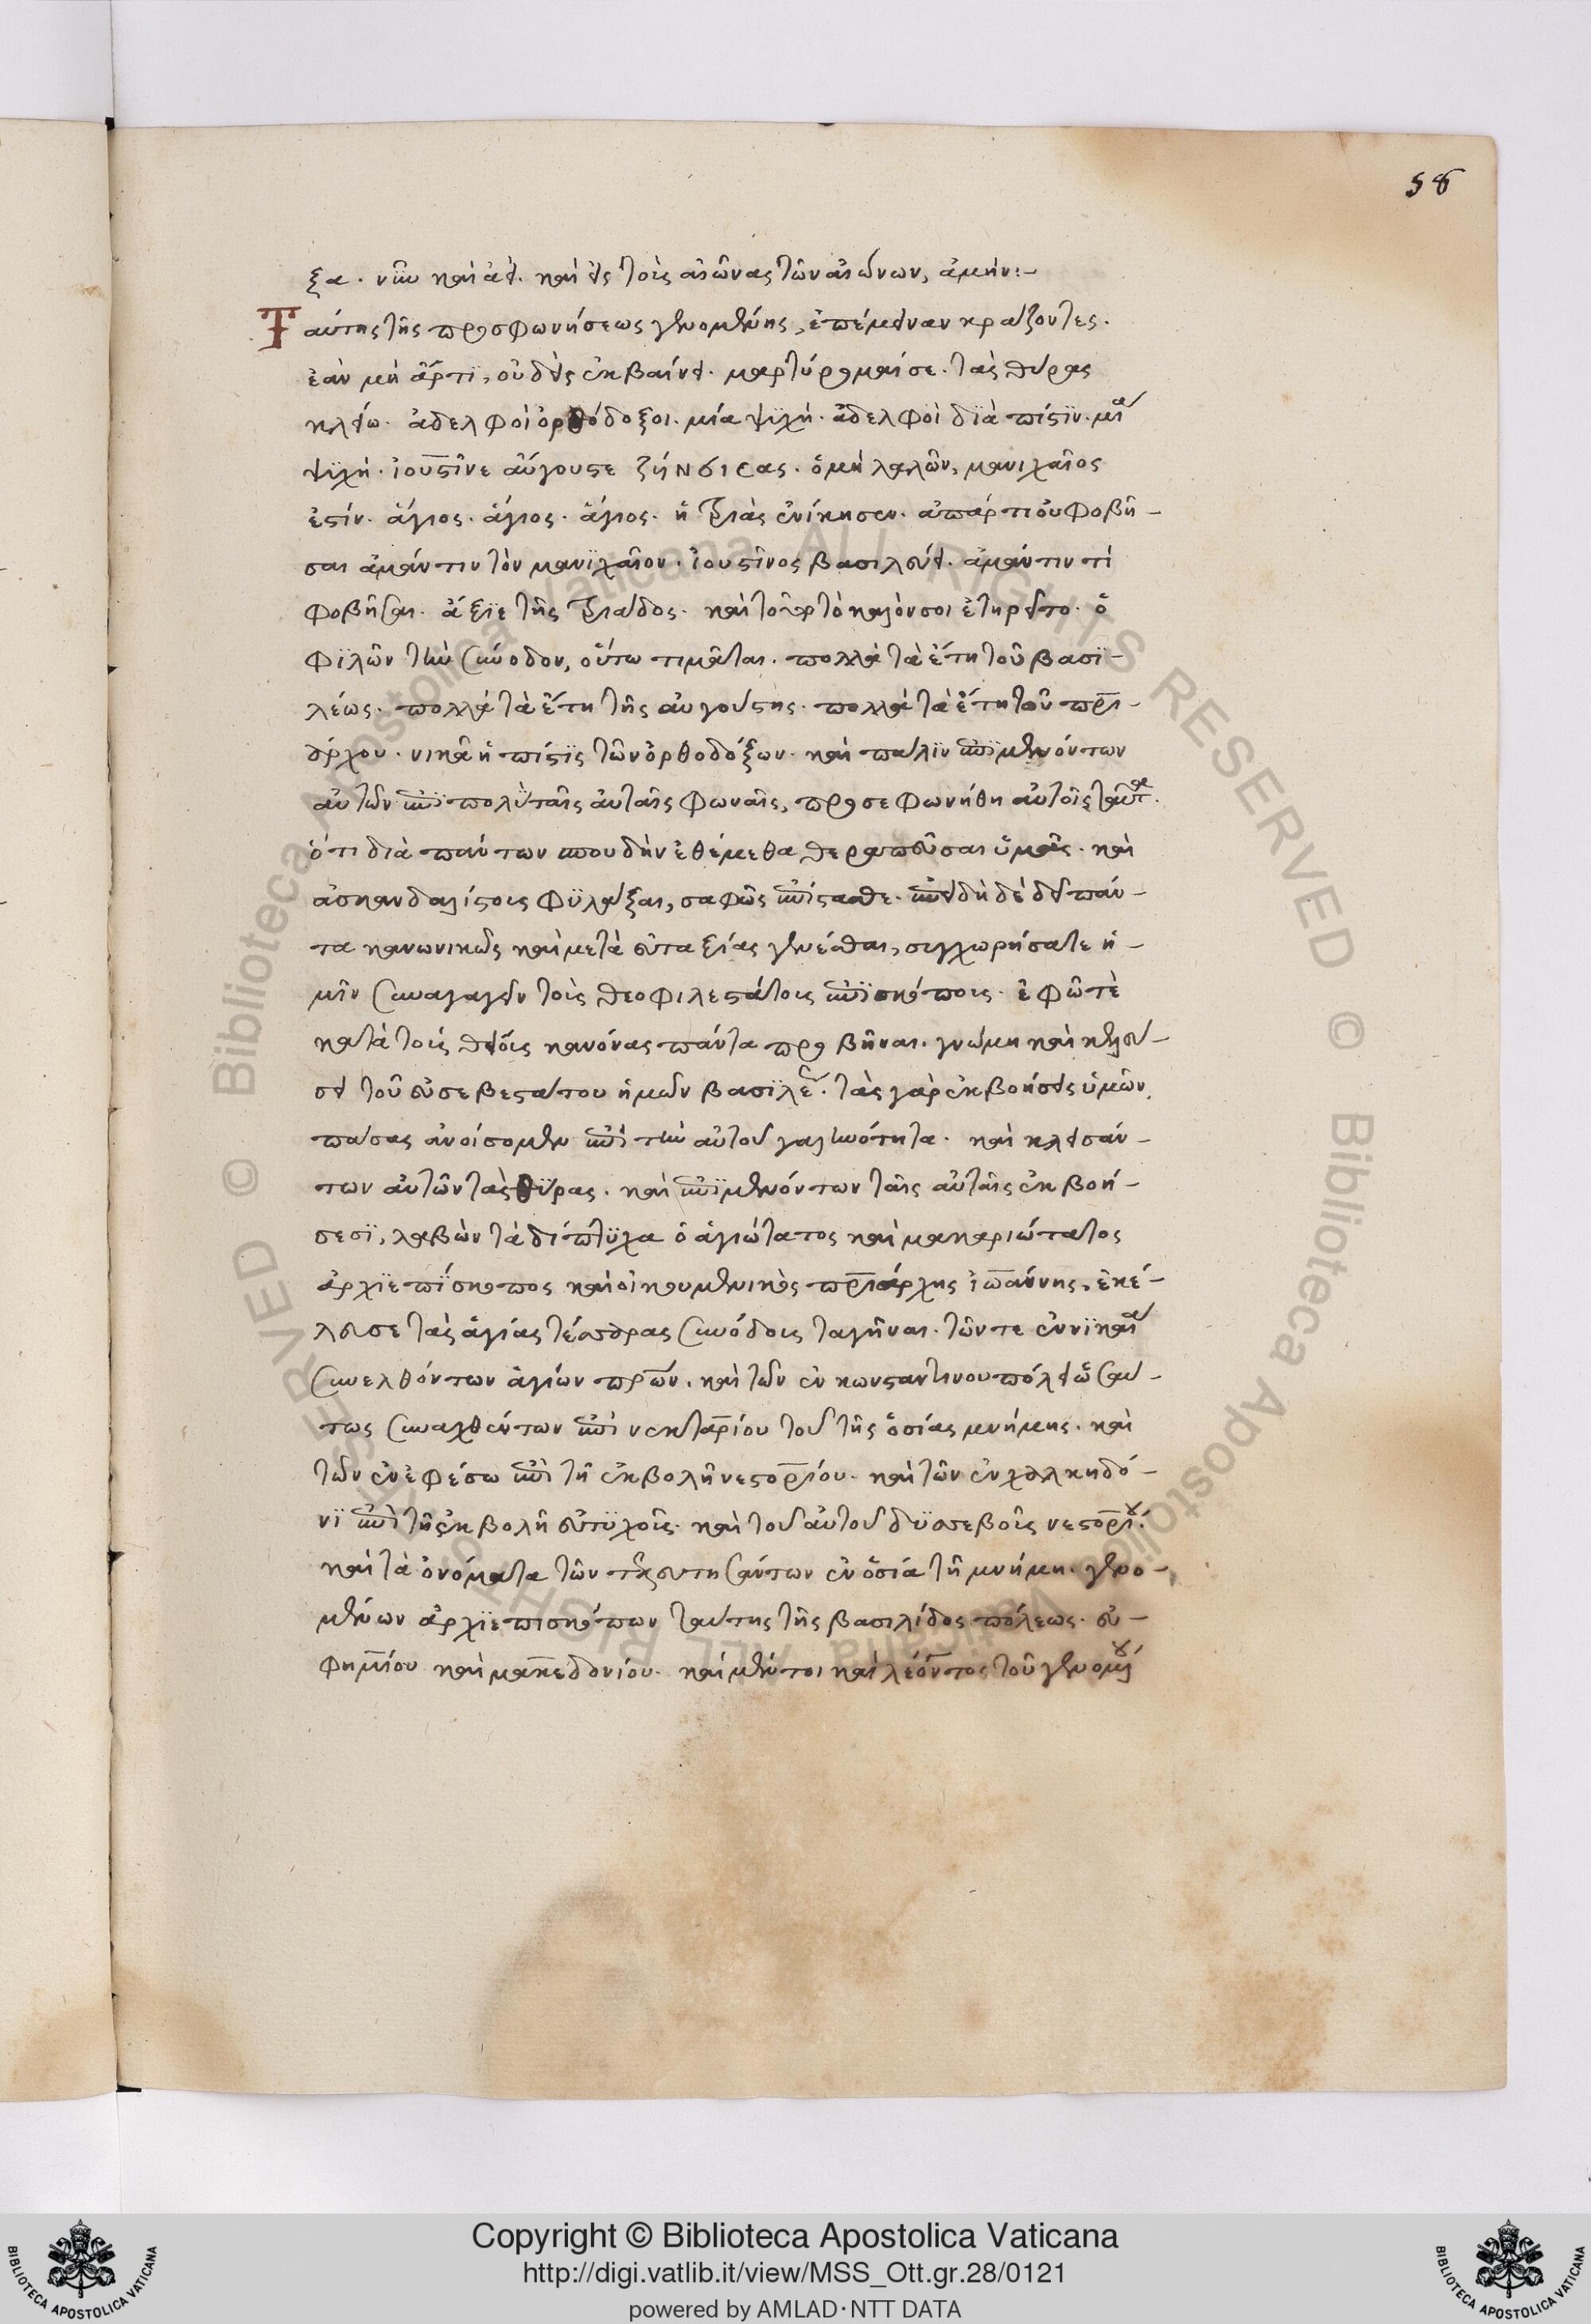 58
ξα. νῦν καὶ ἀεὶ. καὶ εἰς τοὺς αἰῶνας τῶν αἰώνων, ἀμήν:-
Ταύτης τῆς προσφωνήσεως γενομένης, ἐπέμειναν κράζοντες.
ἐὰν μὴ ἄρτϊ, οὐδεὶς ἐκβαίνει. μαρτύρομαί σε. τὰς θύρας
κλείω. ἀδελφοὶ ὀρθόδοξοι. μία ψϋχή. ἀδελφοὶ δϊὰ πίστϊν. μία
ψϋχή. ἰουστῖνε αὔγουστε ζήνσίcας. ὁ μὴ λαλῶν, μανιχαῖος
ἐστίν. ἅγιος. ἅγιος. ἅγιος. ἡ Τριὰς ἐνίκησεν. ἀπάρτι οὐ φοβῆ-
σαι ἀμάντιν τὸν μανϊχαῖον. ἰουστῖνος βασιλεύει. ἀμάντιν τί
φοβῆσαι. ἄξϊε τῆς Τριάδος. καὶ τοῦτο καλόν σοι ἐτηρεῖτο. ὁ
φϊλῶν τὴν σύνοδον, οὕτω τιμᾶται. πολλὰ τὰ ἔτη τοῦ βασϊ-
λέως. πολλὰ τὰ ἔτη τῆς αὐγούστης. πολλὰ τὰ ἔτη τοῦ πρι-
άρχου. νικᾶ ἡ πίστϊς τῶν ὀρθοδόξων. καὶ πάλϊν ἐπϊμενόντων
αὐτῶν ἐπϊπολὺ ταῖς αὐταῖς φωναῖς, προσεφωνήθη αὐτοῖς ταῦτα.
ὅτι διὰ πάντων σπουδὴν ἐθέμεθα θεραπεῦσαι ὑμᾶς. καὶ
ἀσκανδαλίστους φϋλάξαι, σαφῶς ἐπίστασθε. ἐπειδὴ δὲ δεῖ πάν-
τα κανωνικῶς καὶ μετὰ εὐταξίας γενέσθαι, συγχωρήσατε ἡ-
μῖν συναγαγεῖν τοὺς θεοφιλεστάτους ἐπϊσκόπους. ἐφῶ τὲ
κατὰ τοὺς θείους κανόνας πάντα προβῆναι. γνώμη καὶ κελεύ-
σει τοῦ εὐσεβεστάτου ἡμῶν βασϊλέως. τὰς γὰρ ἐκβοήσεις ὑμῶν
πάσας ἀνοίσομεν ἐπὶ τὴν αὐτοῦ γαληνότητα. καὶ κλεισάν-
των αὐτῶν τὰς θϋρας. καὶ ἐπϊμενόντων ταῖς αὐταῖς ἐκβοή-
σεσϊ, λαβὼν τὰ δίπτϋχα ὁ ἁγιώτατος καὶ μακαριώτατος
ἀρχϊεπΐσκοπος καὶ οἰκουμενικὸς πριάρχης ἰωάννης, ἐκέ-
λευσε τὰς ἁγίας τέσσαρας συνόδους ταγῆναι. τῶν τε ἐν νϊκαία
συνελθόντων ἁγίων πρων. καὶ τῶν ἐν κωνσταντινουπόλει ὡσαύ-
τως συναχθέντων ἐπὶ νεκταρίου τοῦ τῆς ὁσίας μνήμης. καὶ
τῶν ἐν ἐφέσω ἐπὶ τῆ ἐκβολῆ νεστορίου. καὶ τῶν ἐν χαλκηδό-
νϊ ἐπὶ τῆ ἐκβολῆ εὐτϋχοῦς. καὶ τοῦ αὐτοῦ δϋσσεβοῦς νεστορίου.
καὶ τὰ ὀνόματα τῶν τελευτησάντων ἐν ὁσία τῆ μνήμη. γενο-
μένων ἀρχϊεπισκόπων ταύτης τῆς βασιλίδος πόλεως. εὐ-
φημίου καὶ μακεδονίου. καὶ μέντοι καὶ λέοντος τοῦ γενομένου
Copyright © Biblioteca Apostolica Vaticana
http://digi.vatlib.it/view/MSS_Ott.gr.28/0121
powered by AMLAD·NTT DATA